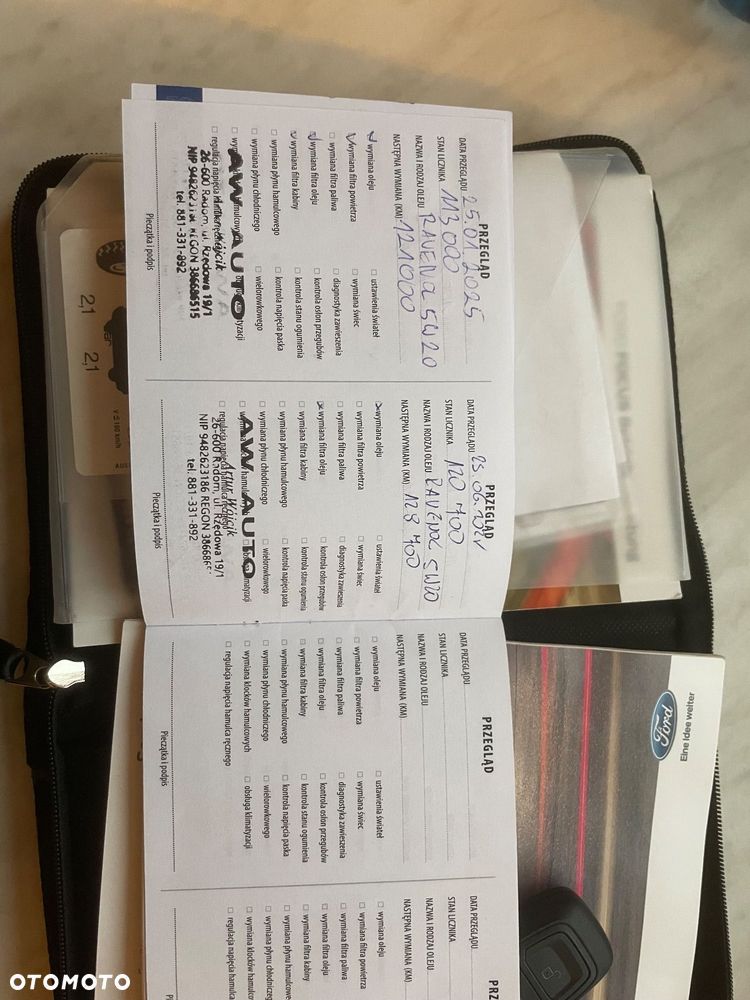 PRZEGLĄD
DATA PRZEGLĄDU 25.01.2025
STAN LICZNIKA 113000
NAZWA I RODZAJ OLEJU RAVENOL 5W20
NASTĘPNA WYMIANA (KM) 121000
wymiana oleju
ustawienia świateł
wymiana filtra powietrza
wymiana świec
wymiana filtra paliwa
diagnostyka zawieszenia
wymiana filtra oleju
kontrola osłon przegubów
wymiana filtra kabiny
kontrola stanu ogumienia
wymiana płynu hamulcowego
kontrola napięcia paska
wymiana płynu chłodniczego
wielorowkowego
AW AUTO
26-600 Radom, ul. Rzędowa 19/1
tel. 881-331-892
Pieczątka i podpis
PRZEGLĄD
DATA PRZEGLĄDU
STAN LICZNIKA 120 700
NAZWA I RODZAJ OLEJU RAVENOL 5W20
NASTĘPNA WYMIANA (KM) 128 700
wymiana oleju
ustawienia świateł
wymiana filtra powietrza
wymiana świec
wymiana filtra paliwa
diagnostyka zawieszenia
wymiana filtra oleju
kontrola osłon przegubów
wymiana filtra kabiny
kontrola stanu ogumienia
wymiana płynu hamulcowego
kontrola napięcia paska
wymiana płynu chłodniczego
wielorowkowego
AW AUTO
Artur Wójcik
26-600 Radom, ul. Rzędowa 19/1
NIP 9482623186 REGON
tel. 881-331-892
Pieczątka i podpis
PRZEGLĄD
DATA PRZEGLĄDU
STAN LICZNIKA
NAZWA I RODZAJ OLEJU
NASTĘPNA WYMIANA (KM)
wymiana oleju
ustawienia świateł
wymiana filtra powietrza
wymiana świec
wymiana filtra paliwa
diagnostyka zawieszenia
wymiana filtra oleju
kontrola osłon przegubów
wymiana filtra kabiny
kontrola stanu ogumienia
wymiana płynu hamulcowego
kontrola napięcia paska
wymiana płynu chłodniczego
wielorowkowego
wymiana klocków hamulcowych
obsługa klimatyzacji
regulacja napięcia hamulca ręcznego
Pieczątka i podpis
DATA PRZEGLĄDU
STAN LICZNIKA
NAZWA I RODZAJ OLEJU
NASTĘPNA WYMIANA (KM)
wymiana oleju
wymiana filtra powietrza
wymiana filtra paliwa
wymiana filtra oleju
wymiana filtra kabiny
2,1
2,1
Ford
Eine Idee weiter
OTOMOTO